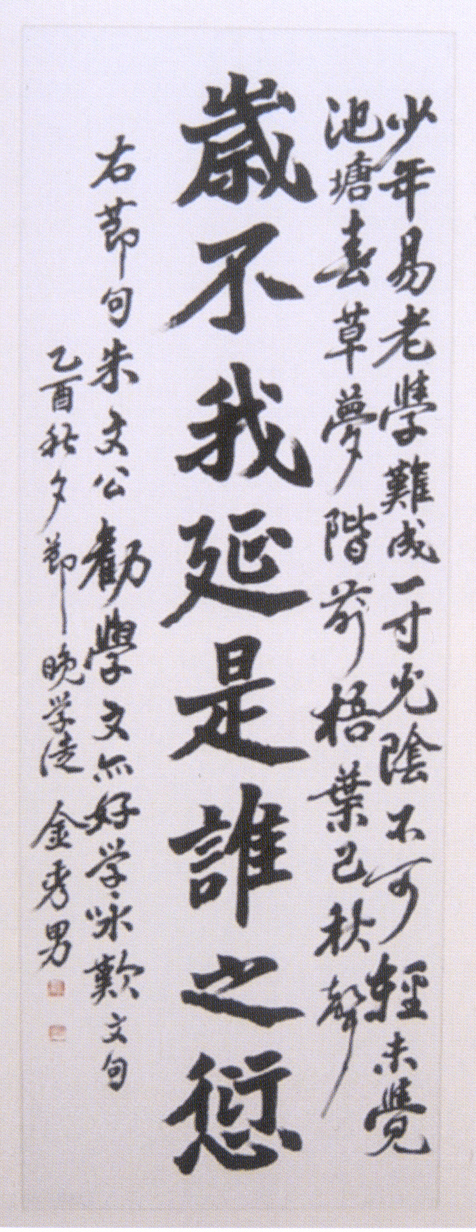 少年易老學難成一寸光陰不可輕未覺
池塘春草夢階前梧葉已秋聲
歲不我延是誰之愆
右節句朱文公勸學文亦好学咏歎文句
乙酉秋夕節晚学徒金秀男